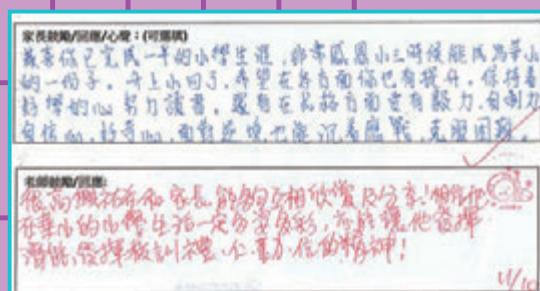 家長鼓勵/回應/心聲：(可選填)
恭喜你已完成一年的小學生涯，非常感恩小三時候能成為華小
的一份子。升上小四了，希望在各方面你也有提升，保持着
好學的心努力讀書，還有在品格方面要有毅力，自制力
自信心，好奇心，面對逆境也能沉着應戰，克服困難。
老師鼓勵/回應:
很高興祐存和家長能夠互相欣賞及分享！相信他
在華小的小學生活一定多姿多彩，亦能讓他發揮
潛能，發揮校訓禮、仁、智、信的精神！
4/10